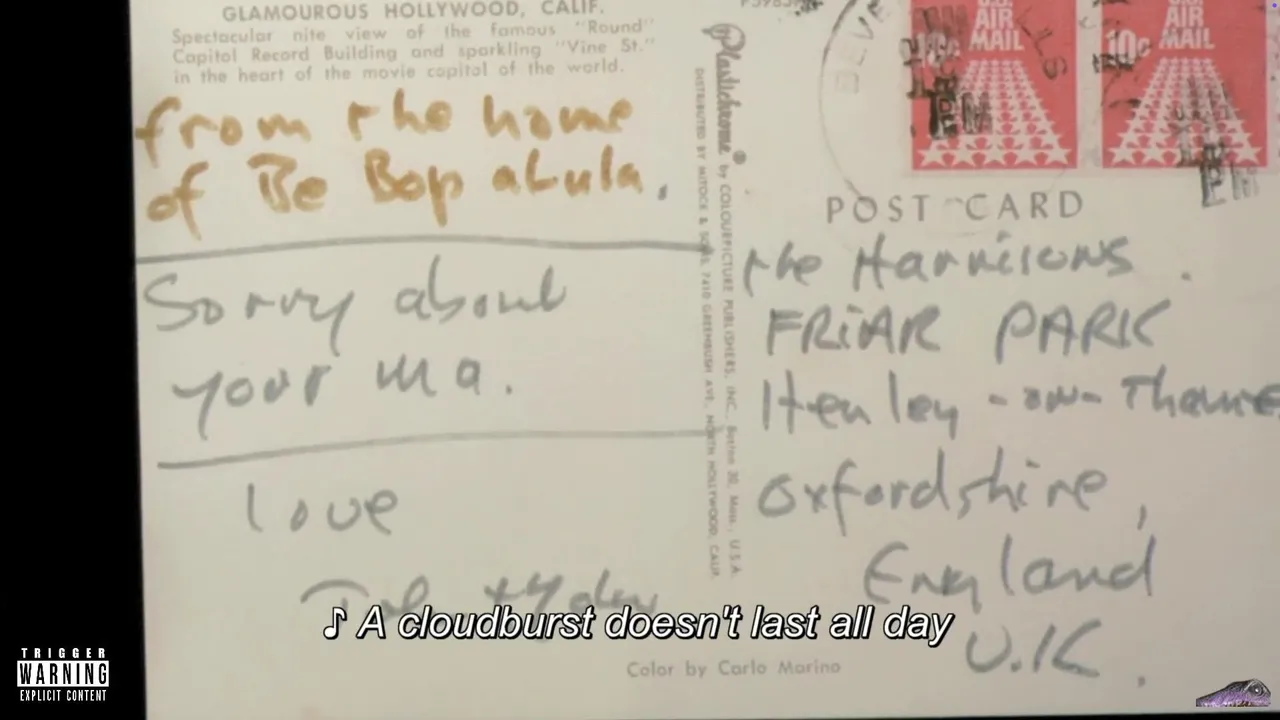 GLAMOUROUS HOLLYWOOD, CALIF.
Spectacular nite view of the famous "Round"
Capitol Record Building and sparkling "Vine St."
in the heart of the movie capitol of the world.
from the home
of Be Bop alula.
Sorry about
your Ma.
love
Plastichrome® by COLOURPICTURE PUBLISHERS, INC. Boston 30, Mass., U.S.A.
DISTRIBUTED BY MITOCK & SONS, 7410 GREENBUSH AVE. NORTH HOLLYWOOD, CALIF.
U.S.
AIR
MAIL
10c
U.S.
AIR
MAIL
10c
PM
PM
POST CARD
the Harrisons.
FRiAR PARK
Henley-on-Thame
Oxfordshire,
England
U.K.
Color by Carlo Marino
♪ A cloudburst doesn't last all day
TRIGGER
WARNING
EXPLICIT CONTENT